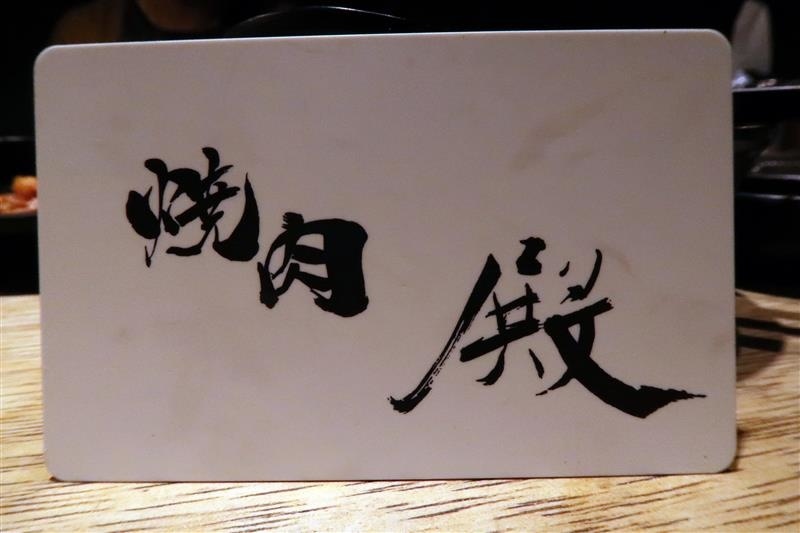 焼肉殿